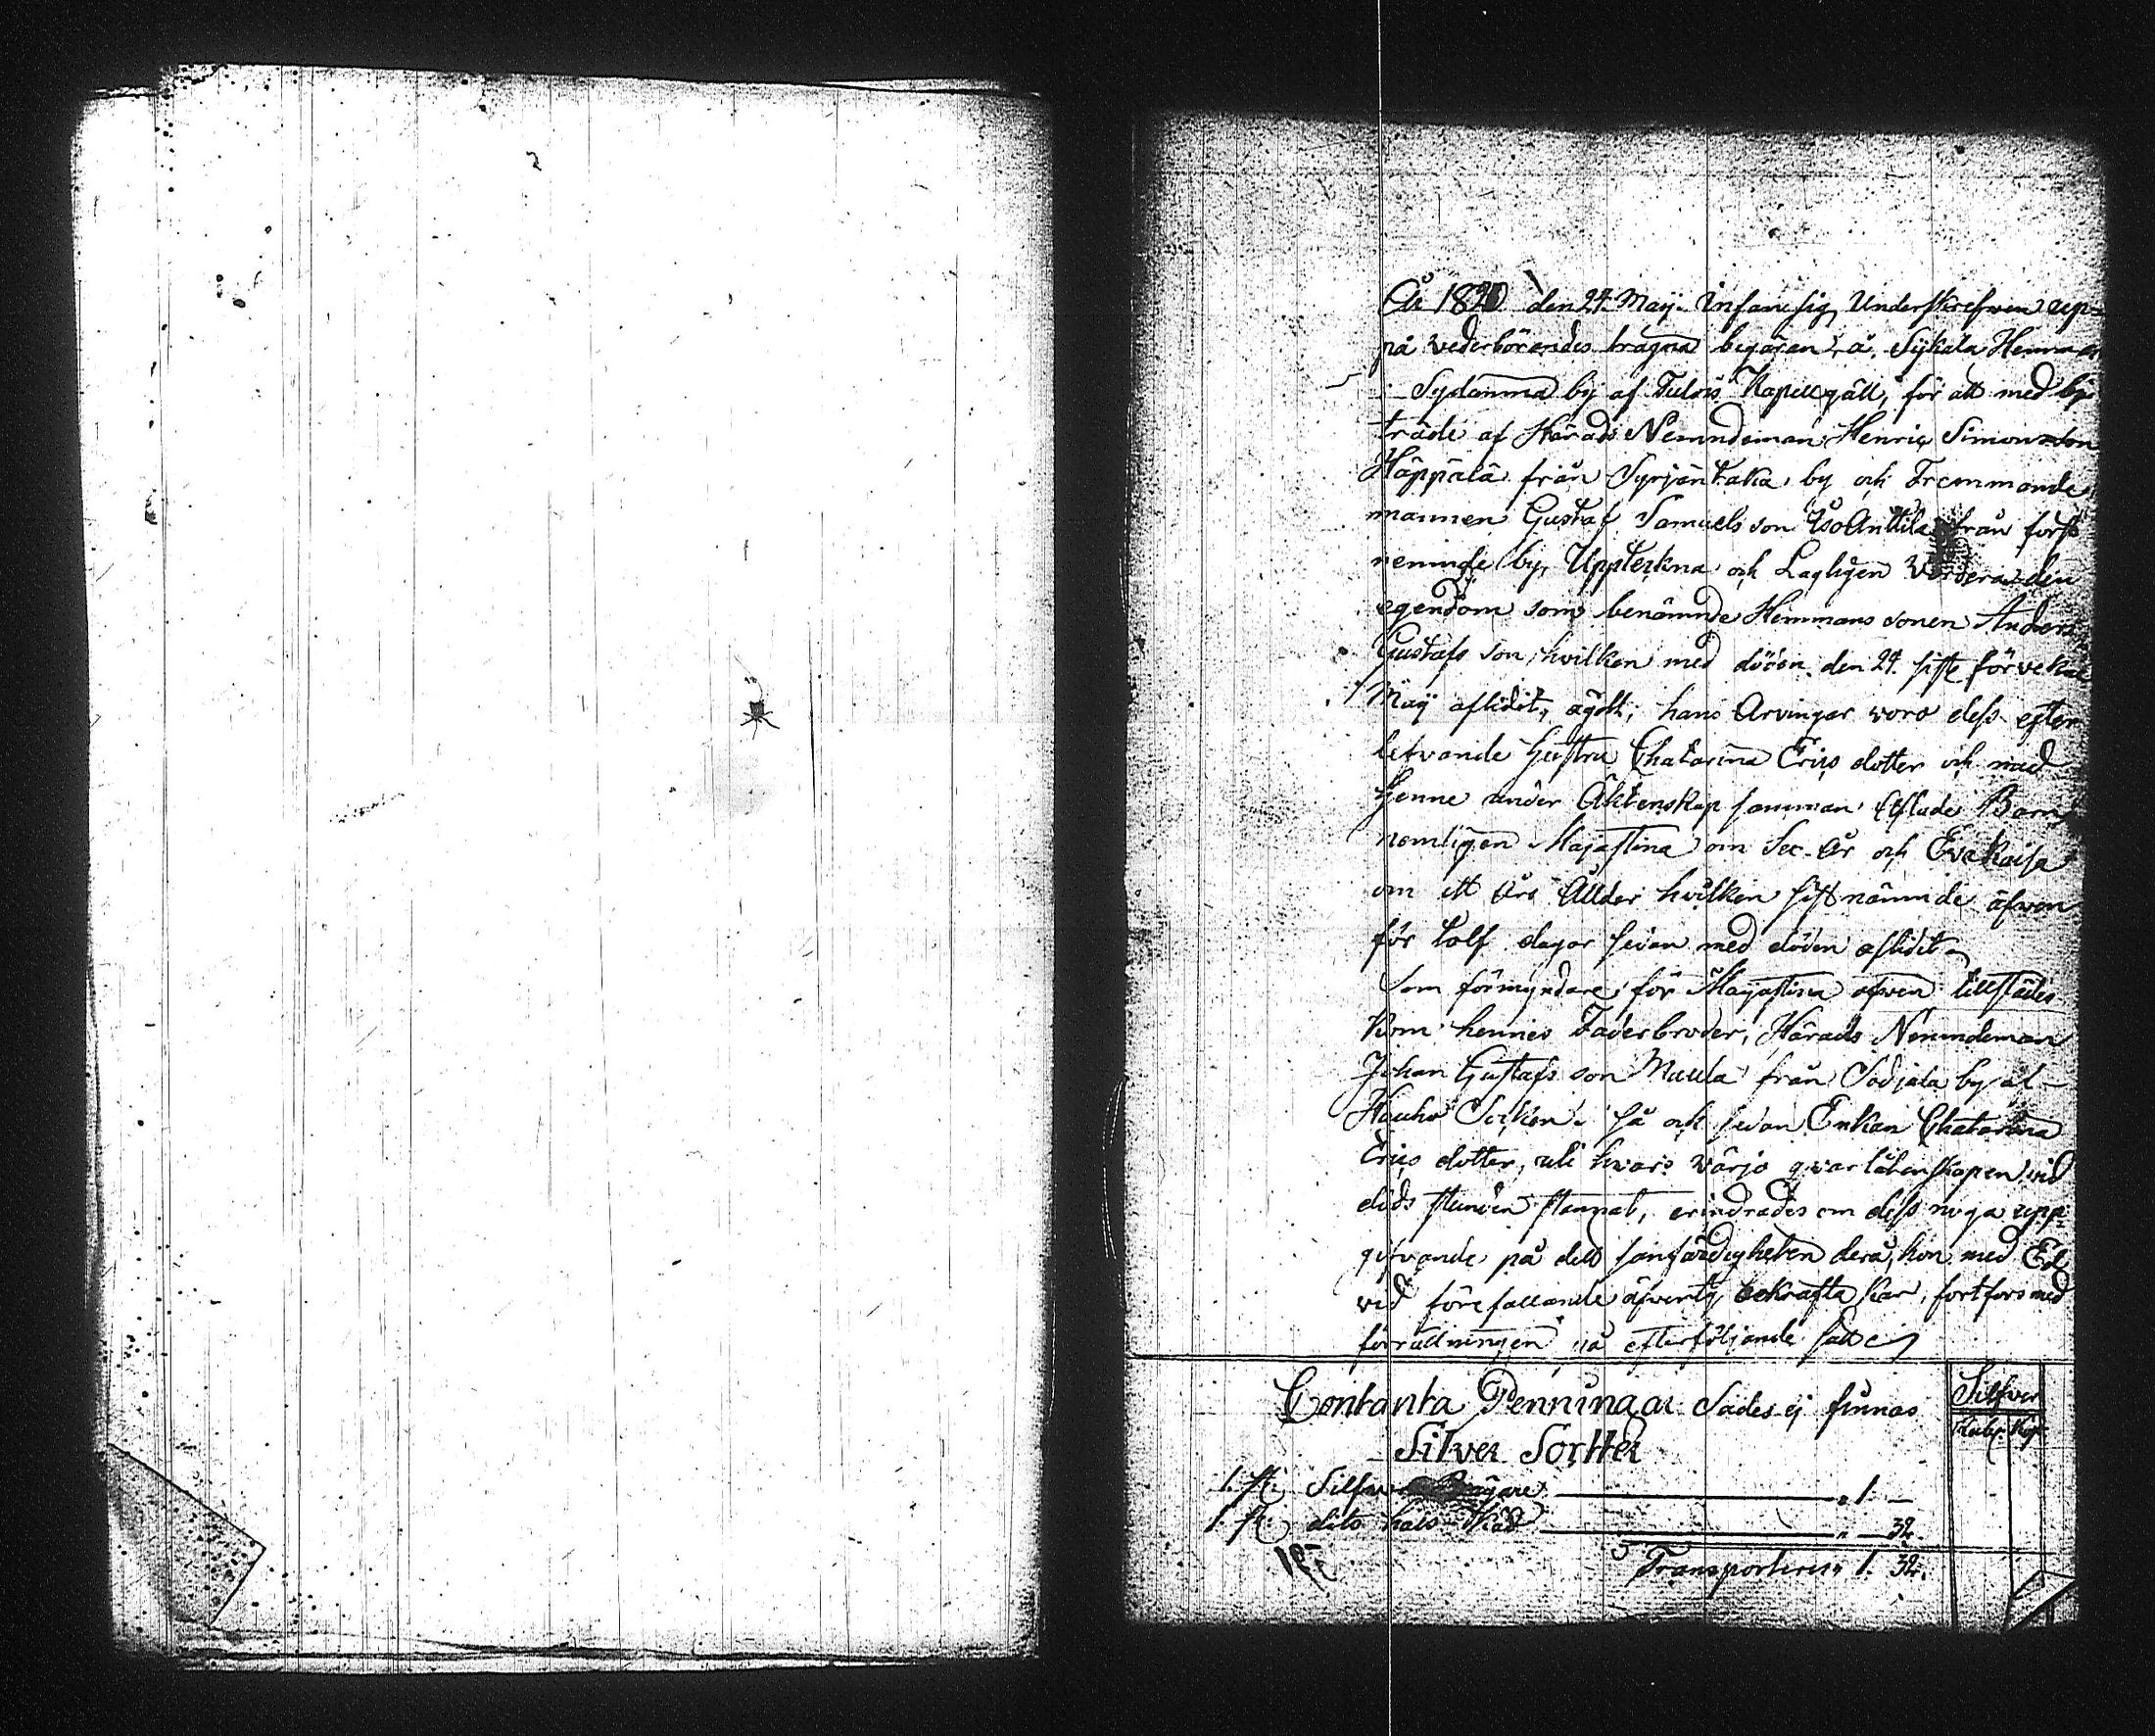 År 1820 den 24. Maij. Infann sig Underskrefven up-
på vederbörandes trägna begäran, å, Sykälä Hemman
i Sydänmä by af Tulois Kapellgäll, för att med by
träde af Härads Nemndeman Henric Simonsson
Häppälä från Syrjäntaka by och Fremmande
mannen Gustaf Samuelsson Iso Anttila från forst
nemnde by, Uppteckna och Lagligen Verdera den
egendom som benämnde Hemmans sonen Anders
Gustafs son, hvilken med döden den 24. siste förvekne
Maij aflidit, ägdt, hans Arvingar woro dess efter
lefvande hustru Chatarina Erics dotter och med
henne under Äktenskap samman aflade Barn
nemligen Majastina om Sex År och Eva Kaisa
om ett Års Ållder hvilken sistnämnde äfwen
för tolf dagar sedan med döden aflidit
Som förmyndare för Majastina äfwen tillstädes
kom hennes Faderbroder, Härads Nemndeman
Johan Gustafs son Muula från Sodjala by af
Hauho Socken. Så och sedan Enkan Chatarina
Erics dotter, uti hwars wärjo qwarlåtenskapen vid
döds stunden stannat, erindrades om dess noga upp-
gifvande på dett sanfärdigheten deraf hon med Ed
vid förefallande äfventyr bekräfta kan, fortfors med
förrättningen på efterföljande sätt
Contanta Penningar Sades ej finnas
Silfver
Rub. Kop.
Silver Sorter
1. st. Silfwer Bägare " 1. —
1. st. dito hals Käd " — 32.
Transporteres " 1. 32.